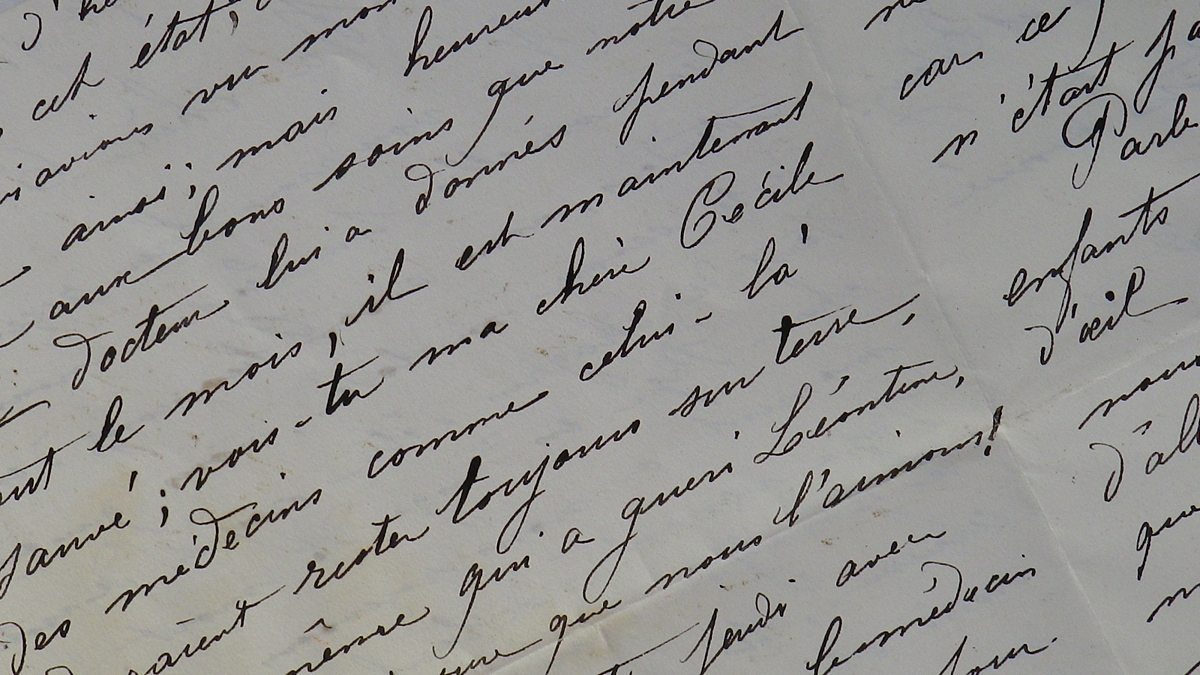 cet état,
avions vu mon
ainsi; mais heureus
aux bons soins que notre
docteur lui a donnés pendant
le mois, il est maintenant
sauvé; vois-tu ma chère Cécile
des médecins comme celui-là
rester toujours sur terre,
même qui a guéri Léontine,
que nous l'aimons!
jeudi avec
le médecin
jour
car ce
n'était pa
Parle
enfants
d'œil
nous
d'all
que